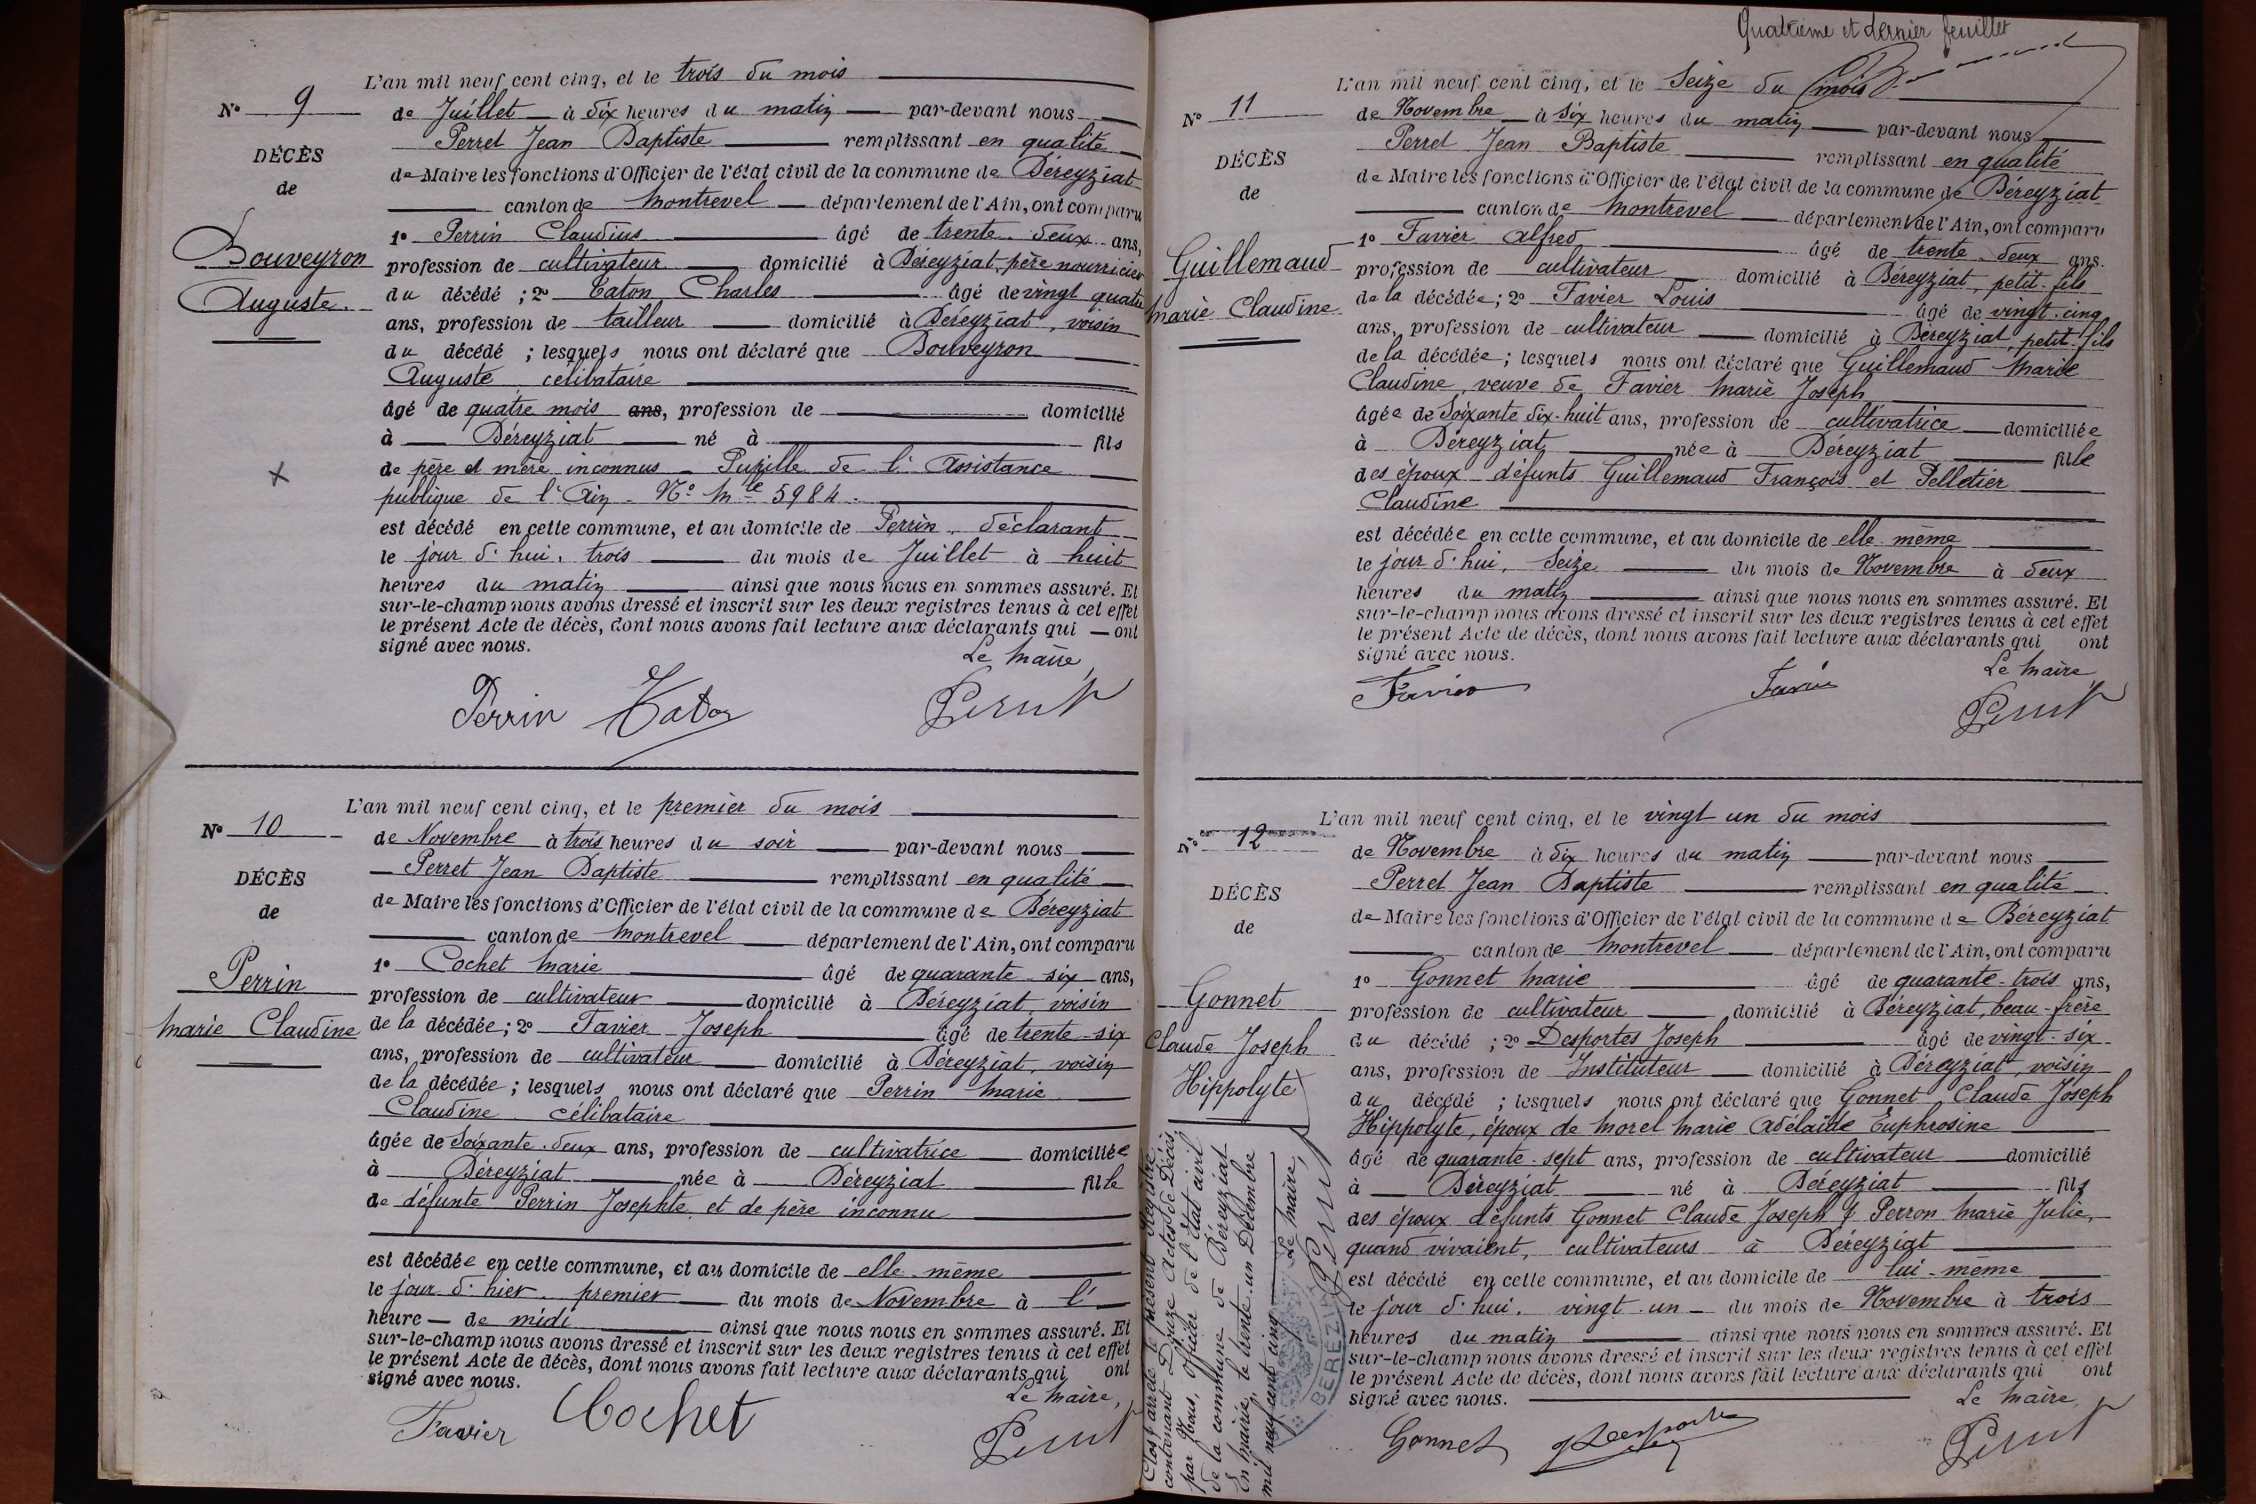 N° 9
DÉCÈS
de
Bouveyron
Auguste.
L'an mil neuf cent cinq, et le trois du mois
de Juillet à dix heures du matin par-devant nous
Perret Jean Baptiste remplissant en qualité
de Maire les fonctions d'Officier de l'état civil de la commune de Béreyziat
canton de Montrevel département de l'Ain, ont comparu
1° Perrin Claudius âgé de trente-deux ans,
profession de cultivateur domicilié à Béreyziat, père nourricier
du décédé ; 2° Caton Charles âgé de vingt quatre
ans, profession de tailleur domicilié à Béreyziat, voisin
du décédé ; lesquels nous ont déclaré que Bouveyron
Auguste, célibataire
âgé de quatre mois ans, profession de domicilié
à Béreyziat né à fils
de père et mère inconnus - Pupille de l'Assistance
publique de l'Ain - N° Mle 5984.
est décédé en cette commune, et au domicile de Perrin, déclarant
le jour d'hui, trois du mois de Juillet à huit
heures du matin ainsi que nous nous en sommes assuré. Et
sur-le-champ nous avons dressé et inscrit sur les deux registres tenus à cet effet
le présent Acte de décès, dont nous avons fait lecture aux déclarants qui ont
signé avec nous.
Le Maire,
Perrin Caton Perret
N° 10
DÉCÈS
de
Perrin
Marie Claudine
L'an mil neuf cent cinq, et le premier du mois
de Novembre à trois heures du soir par-devant nous
Perret Jean Baptiste remplissant en qualité
de Maire les fonctions d'Officier de l'état civil de la commune de Béreyziat
canton de Montrevel département de l'Ain, ont comparu
1° Cochet Marie âgé de quarante-six ans,
profession de cultivateur domicilié à Béreyziat, voisin
de la décédée ; 2° Favier Joseph âgé de trente-six
ans, profession de cultivateur domicilié à Béreyziat, voisin
de la décédée ; lesquels nous ont déclaré que Perrin Marie
Claudine, célibataire
âgée de soixante-deux ans, profession de cultivatrice domiciliée
à Béreyziat née à Béreyziat fille
de défunte Perrin Josephte et de père inconnu
est décédée en cette commune, et au domicile de elle-même
le jour d'hier premier du mois de Novembre à l'
heure de midi ainsi que nous nous en sommes assuré. Et
sur-le-champ nous avons dressé et inscrit sur les deux registres tenus à cet effet
le présent Acte de décès, dont nous avons fait lecture aux déclarants qui ont
signé avec nous.
Le Maire,
Favier Cochet Perret
Quatrième et dernier feuillet
N° 11
DÉCÈS
de
Guillemaud
Marie Claudine
L'an mil neuf cent cinq, et le seize du mois
de Novembre à six heures du matin par-devant nous
Perret Jean Baptiste remplissant en qualité
de Maire les fonctions d'Officier de l'état civil de la commune de Béreyziat
canton de Montrevel département de l'Ain, ont comparu
1° Favier Alfred âgé de trente-deux ans.
profession de cultivateur domicilié à Béreyziat, petit-fils
de la décédée ; 2° Favier Louis âgé de vingt-cinq
ans, profession de cultivateur domicilié à Béreyziat, petit-fils
de la décédée ; lesquels nous ont déclaré que Guillemaud Marie
Claudine, veuve de Favier Marie Joseph
âgée de soixante dix-huit ans, profession de cultivatrice domiciliée
à Béreyziat née à Béreyziat fille
des époux défunts Guillemaud François et Pelletier
Claudine
est décédée en cette commune, et au domicile de elle-même
le jour d'hui, seize du mois de Novembre à deux
heures du matin ainsi que nous nous en sommes assuré. Et
sur-le-champ nous avons dressé et inscrit sur les deux registres tenus à cet effet
le présent Acte de décès, dont nous avons fait lecture aux déclarants qui ont
signé avec nous.
Le Maire
Favier Favier Perret
N° 12
DÉCÈS
de
Gonnet
Claude Joseph
Hippolyte
L'an mil neuf cent cinq, et le vingt un du mois
de Novembre à dix heures du matin par-devant nous
Perret Jean Baptiste remplissant en qualité
de Maire les fonctions d'Officier de l'état civil de la commune de Béreyziat
canton de Montrevel département de l'Ain, ont comparu
1° Gonnet Marie âgé de quarante-trois ans,
profession de cultivateur domicilié à Béreyziat, beau-frère
du décédé ; 2° Desportes Joseph âgé de vingt-six
ans, profession de Instituteur domicilié à Béreyziat, voisin
du décédé ; lesquels nous ont déclaré que Gonnet Claude Joseph
Hippolyte, époux de Morel Marie Adélaïde Euphrosine
âgé de quarante-sept ans, profession de cultivateur domicilié
à Béreyziat né à Béreyziat fils
des époux défunts Gonnet Claude Joseph & Perron Marie Julie,
quand vivaient, cultivateurs à Béreyziat
est décédé en cette commune, et au domicile de lui-même
le jour d'hui, vingt-un du mois de Novembre à trois
heures du matin ainsi que nous nous en sommes assuré. Et
sur-le-champ nous avons dressé et inscrit sur les deux registres tenus à cet effet
le présent Acte de décès, dont nous avons fait lecture aux déclarants qui ont
signé avec nous.
Le Maire,
Gonnet Desportes Perret
Clos & arrêté le présent Registre
contenant Douze Actes de Décès,
par Nous, Officier de l'état civil
de la commune de Béreyziat
En Mairie, le trente-un Décembre
mil neuf cent cinq
Le Maire,
Perret